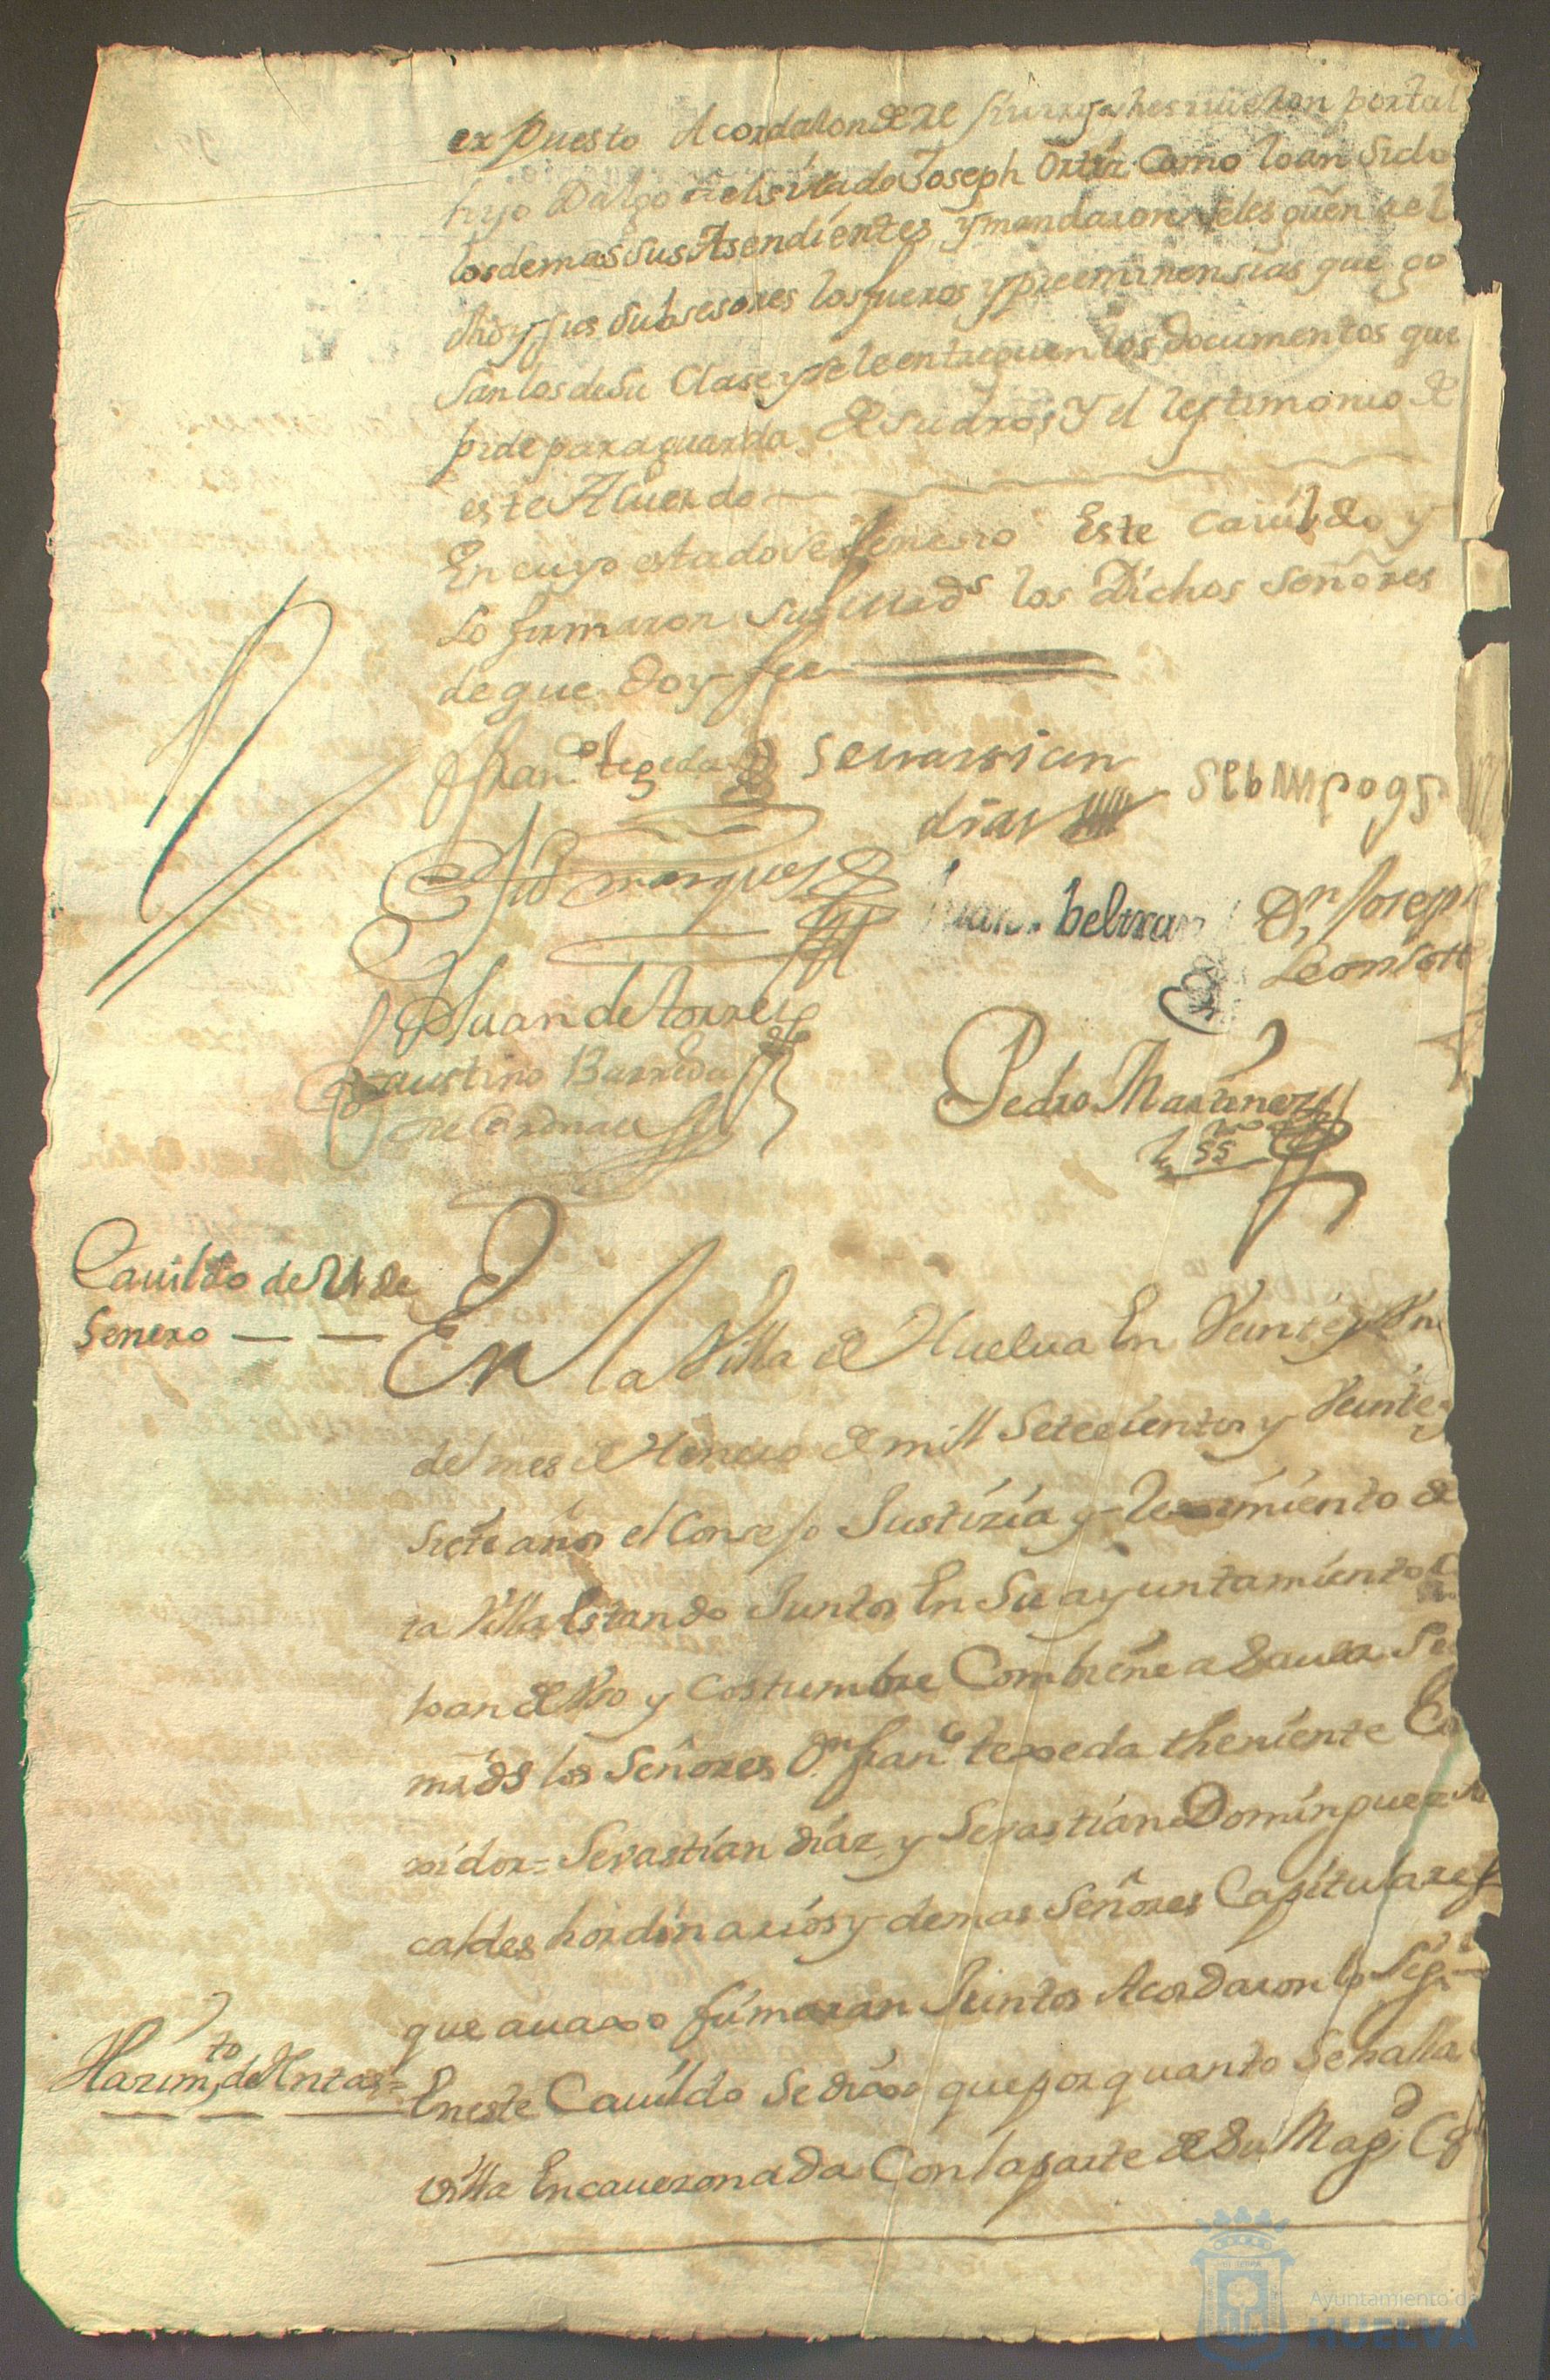 expuesto Acordaron de re
hijo Dalgo al sitado Joseph Ortiz Como loan Sido
los demas sus Asendientes y mandaron seles guen
dho y sus Subsesores los fueros y preeminensias que go
san los de su Clase y se le entreguen los Documentos que
pide para guarda de su dro y el testimonio de
este Acuerdo
En cuyo estado se fenesio Este Cauildo y
Lo firmaron sus mrds los Dichos Señores
de que doy fee
Fran.co tegeda Sevassian
dias
marques Juan beltran Dn Joseph
Leon
Juan de torres
Faustino Barreda
de Cardenas
Pedro Martinez
ss.no
Cauildo de 21 de
Henero
En la Villa de Huelua En Veinte y Un
del mes de Henero de mill Setecientos y Veinte y
siete años el Consejo Justizia y Reximiento de
ta Villa Estando Juntos En Su ayuntamiento
loan de Uso y Costumbre Combiene a Sauer Se
mrds los Señores Dn Franco texeda theniente Co
xidor = Sevastian diaz y Sevastian Dominguez
caldes hordinarios y demas Señores Capitulares
que auaxo firmaran Juntos Acordaron lo Sigte
Harrim.to de Rentas =
En este Cauildo Se dixo que por quanto Se halla
villa Encauezonada Con la parte de Su Magd
Ayuntamiento de
HUELVA